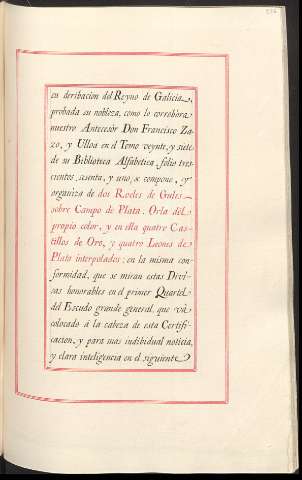 su deribacion del Reyno de Galicia,
probada su nobleza, como lo corrobora
nuestro Antecesór Don Francisco Za-
zo, y Ulloa en el Tomo veynte, y siete
de su Biblioteca Alfabetica, folio tres-
cientos, sesenta, y uno, se compone, y
organiza de dos Roeles de Gules
sobre Campo de Plata; Orla del
propio color, y en ella quatro Cas-
tillos de Oro, y quatro Leones de
Plata interpolados: en la misma con-
formidad, que se miran estas Divi-
sas honorables en el primer Quartel
del Escudo grande general, que và
colocado á la cabeza de esta Certifi-
cacion, y para mas individual noticia,
y clara inteligencia en el siguiente